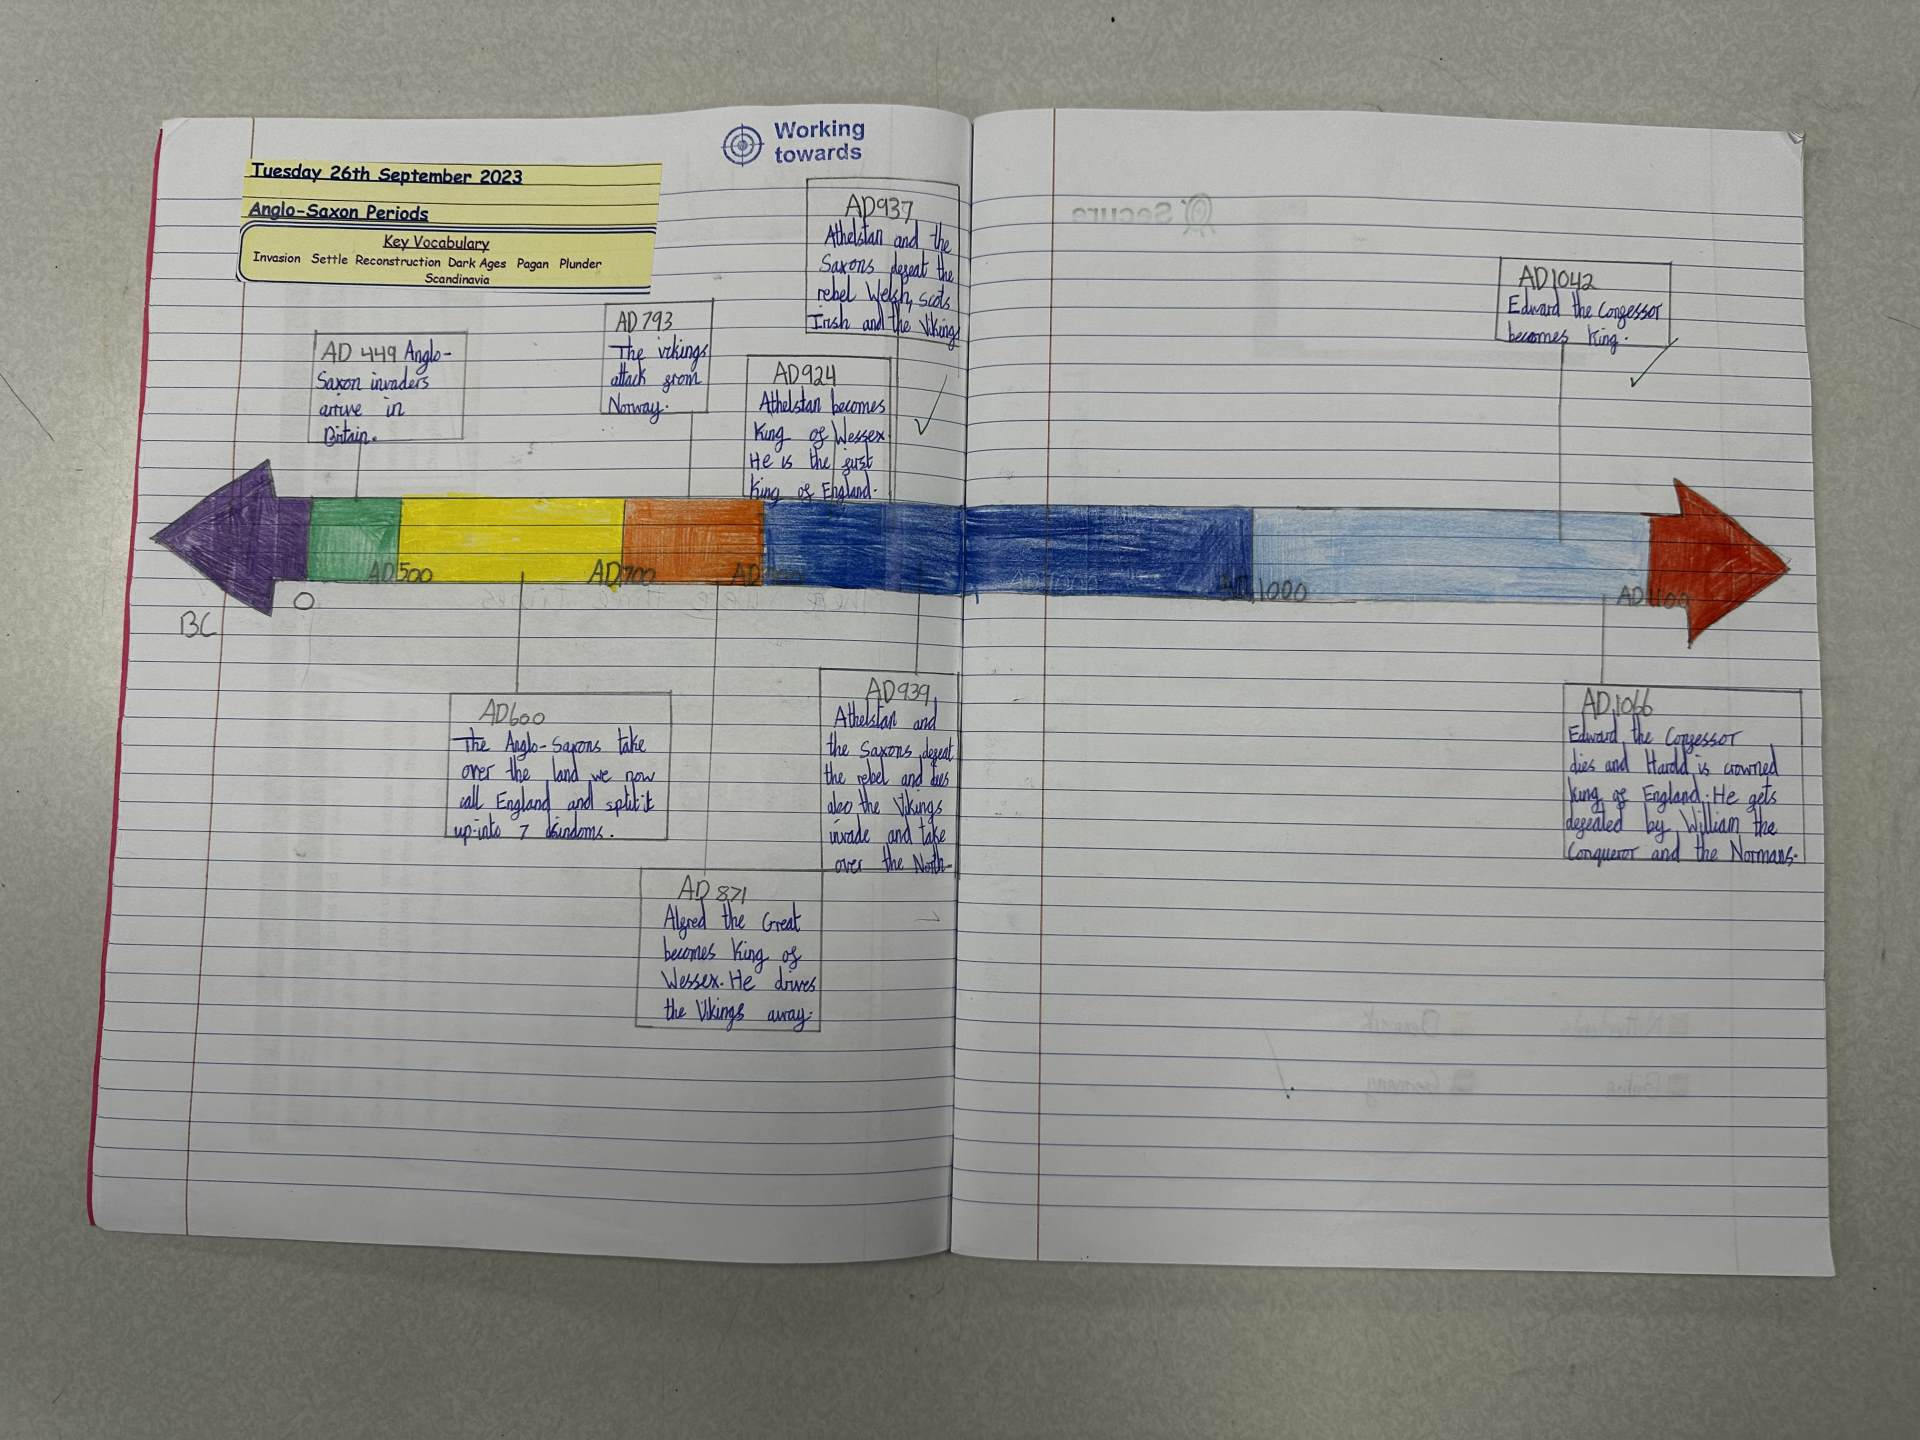 Working
towards
Tuesday 26th September 2023
Anglo-Saxon Periods
Key Vocabulary
Invasion Settle Reconstruction Dark Ages Pagan Plunder
Scandinavia
AD 449 Anglo-
Saxon invaders
arrive in
Britain.
AD 793
The vikings
attack from
Norway.
AD937
Athelstan and the
Saxons defeat the
rebel Welsh, scots
Irish and the Viking
AD924
Athelstan becomes
King of Wessex
He is the first
King of England.
AD1042
Edward the Confessor
becomes King.
BC
0
AD500
AD700
AD1000
AD1100
AD600
The Anglo-Saxons take
over the land we now
call England and split it
up into 7 kindoms.
AD 871
Alfred the Great
becomes King of
Wessex. He drives
the Vikings away.
AD939
Athelstan and
the Saxons defeat
the rebel and dies
also the Vikings
invade and take
over the North
AD1066
Edward the Confessor
dies and Harold is crowned
King of England. He gets
defeated by William the
Conqueror and the Normans.
Secure